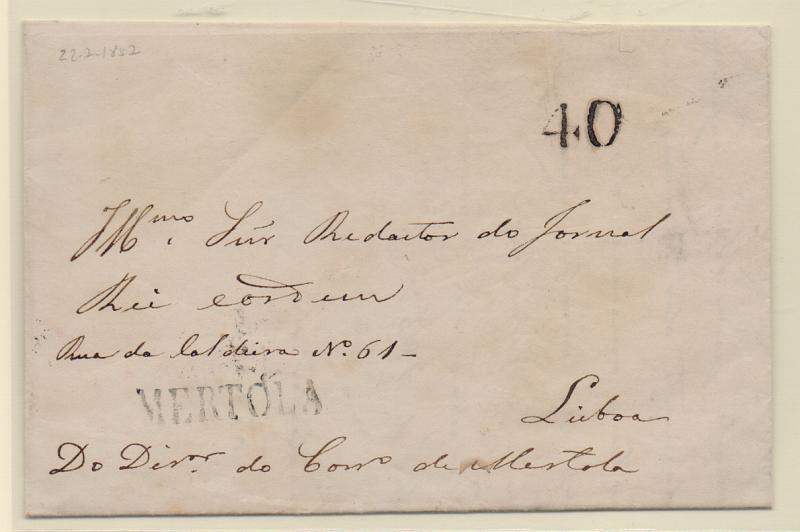 22-2-1852
40
Illmo. Snr Redactor do Jornal
Rei e ordem
Rua da Caldeira No. 61-
MERTOLA
Lisboa
Do Diror. do Corro de Mertola